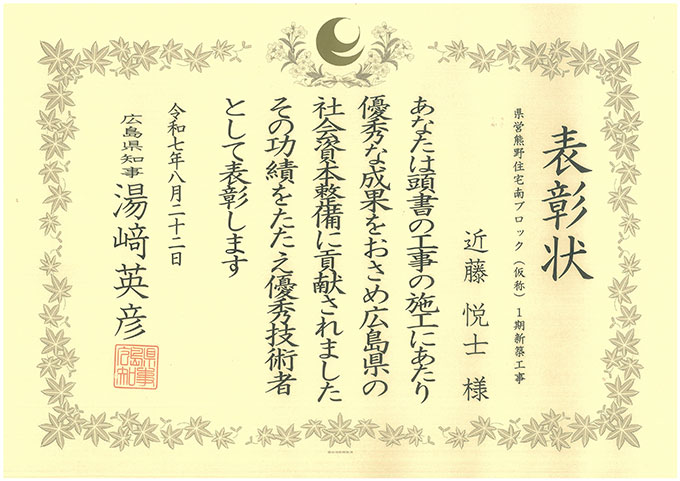 表彰状
県営熊野住宅南ブロック（仮称）１期新築工事
近藤悦士様
あなたは頭書の工事の施工にあたり
優秀な成果をおさめ広島県の
社会資本整備に貢献されました
その功績をたたえ優秀技術者
として表彰します
令和七年八月二十二日
広島県知事
湯﨑英彦
広島県知事